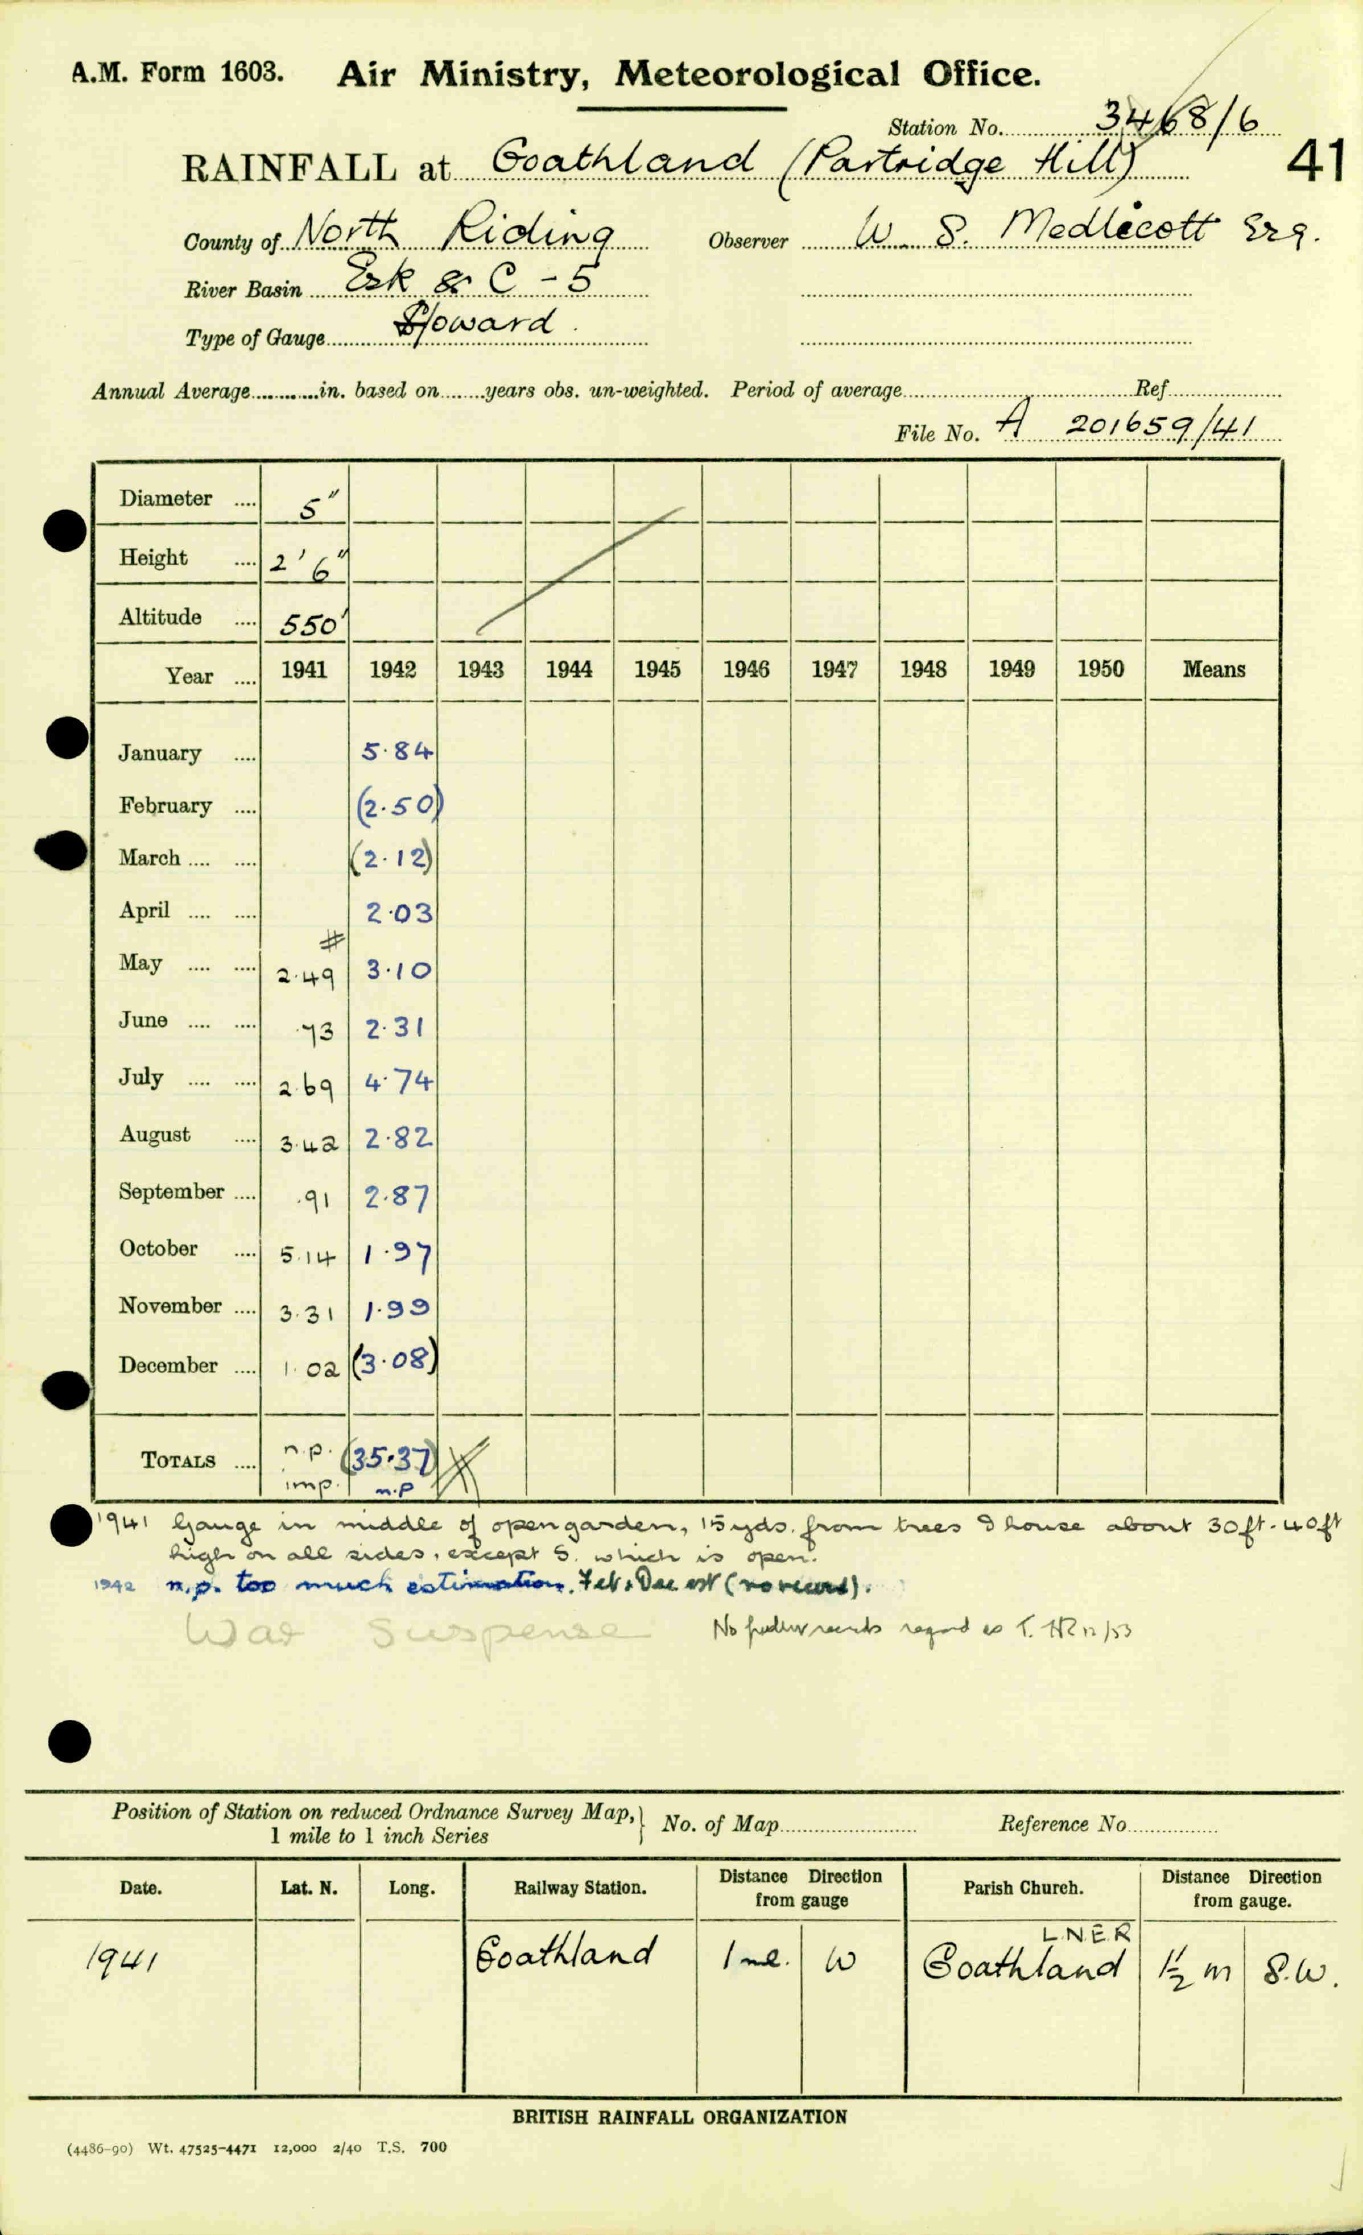 A.M. Form 1603. Air Ministry, Meteorological Office.
Station No. 3468/6
RAINFALL at Goathland (Partridge Hill) 41
County of North Riding Observer W. S. Medlicott Esq.
River Basin Esk & C - 5
Type of Gauge Howard.
Annual Average............in. based on........years obs. un-weighted. Period of average........................Ref....................
File No. A 201659/41
Diameter .... 5"
Height .... 2' 6"
Altitude .... 550'
Year .... 1941 1942 1943 1944 1945 1946 1947 1948 1949 1950 Means
January .... 5.84
February .... (2.50)
March .... .... (2.12)
April .... .... 2.03
#
May .... .... 2.49 3.10
June .... .... .73 2.31
July .... .... 2.69 4.74
August .... 3.42 2.82
September .... .91 2.87
October .... 5.14 1.97
November .... 3.31 1.99
December .... 1.02 (3.08)
TOTALS .... n.p. (35.37)
imp. n.p
1941 Gauge in middle of open garden, 15 yds. from trees & house about 30ft-40ft
high on all sides, except S. which is open.
1942 n.p. too much estimation. Feb & Dec est (no record).
War Suspense No further records regard as T. 12/53
Position of Station on reduced Ordnance Survey Map,} No. of Map........................ Reference No................
1 mile to 1 inch Series
Date. Lat. N. Long. Railway Station. Distance Direction from gauge Parish Church. Distance Direction from gauge.
L.N.E.R
1941 Goathland 1 ml. W Goathland 1½ m S.W.
BRITISH RAINFALL ORGANIZATION
(4486-90) Wt. 47525-4471 12,000 2/40 T.S. 700